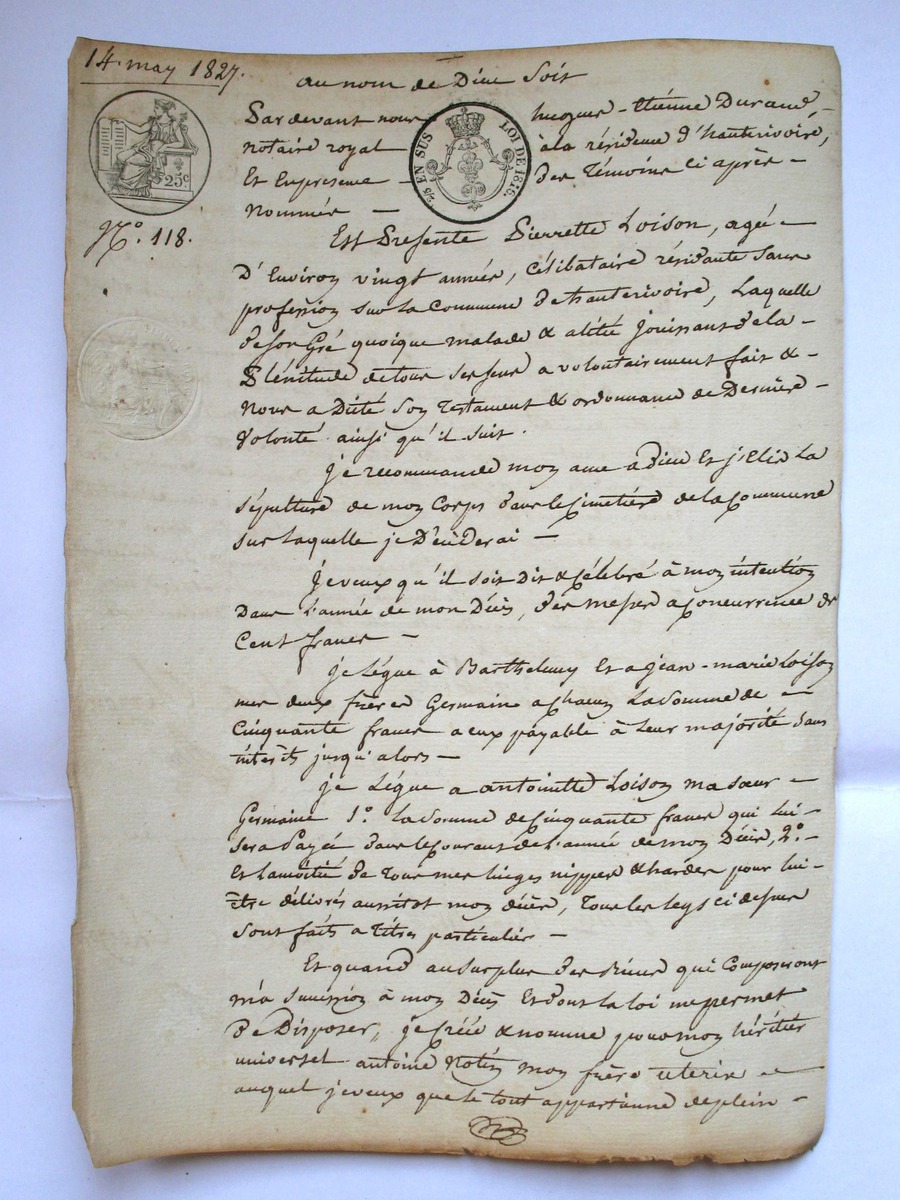 14. may 1827.
au nom de Dieu Soit
Pardevant nous hugues-Etiénne Durand -
notaire royal à la résidence d'hauterivoire,
Et En presence - des Témoins Ci après -
nommés -
25c
EN SUS LOI DE 1816.
N.° 118.
Est Presente Pierrette Loison, agée -
D'Environ vingt années, Célibataire résidante Sans
profession sur la Commune d'hauterivoire, Laquelle
de son Gré quoique malade & alitée Jouissant de la -
Plénitude de tous ses sens a volontairement fait & -
nous a Dicté Son Testament & ordonnance de Dernière -
Volonté ainsi qu'il suit.
je recommande mon ame à Dieu Et j'Elis La
Sépulture de mon Corps dans le Cimetière de la Commune
sur laquelle je Décéderai -
Je veux qu'il soit Dit & Célébré à mon intention
Dans l'année de mon Décès, des messes a Concurrence de
Cent francs -
je Légue à Barthelemy Et a jean-marie Loison
mes deux frères Germains a Chacun La Somme de -
Cinquante francs a eux payable à Leur majorité Sans
intérêts jusqu'alors -
je Légue a antoinette Loison ma Sœur -
Germaine 1.° La Somme de Cinquante francs qui lui -
Sera Payée dans le Courant de l'année de mon Décès, 2.° -
Et la moitié de Tous mes linges nippes & hardes pour lui -
être délivrés aussitot mon décès, Tous les legs ci dessus
Sont faits a Titres particulier -
Et quand au Surplus des Biens qui Composeront
ma Succession à mon Décès Et dont la loi me permet
de Disposer, je Créée & nomme pour mon héritier
universel antoine Notin mon frère uterin -
auquel je veux que le tout appartienne de plein -